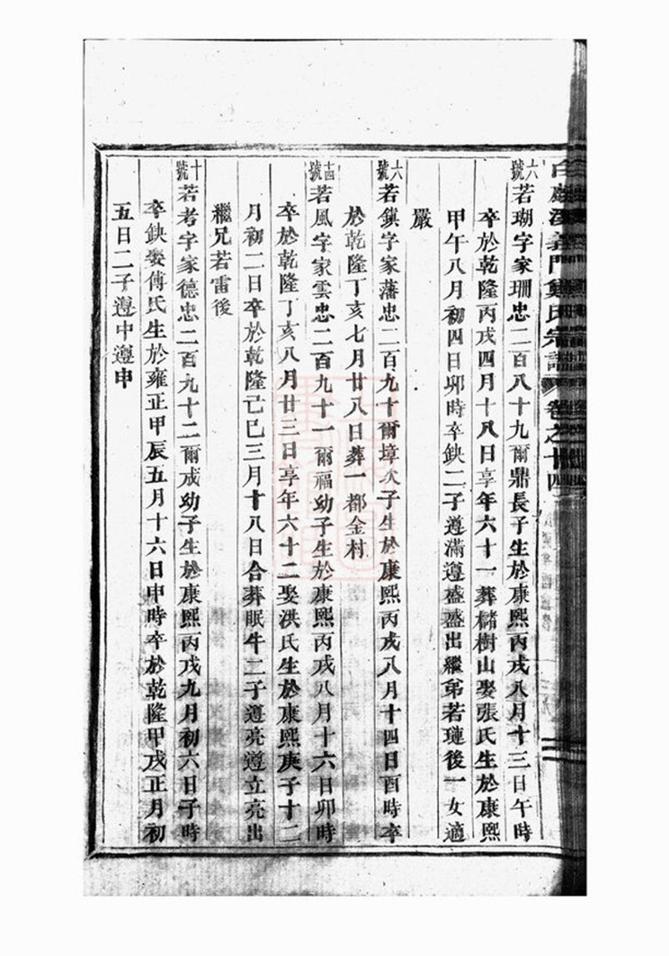 義門鄭氏宗譜 卷之十四
六號 若瑚字家珊忠二百八十九爾鼎長子生於康熙丙戌八月十三日午時
卒於乾隆丙戌四月十八日享年六十一葬櫧樹山娶張氏生於康熙
甲午八月初四日卯時卒鈌二子遵滿遵盛盛出繼弟若璉後一女適
嚴
六號 若鎮字家藩忠二百九十爾墇次子生於康熙丙戌八月十四日酉時卒
於乾隆丁亥七月廿八日葬一都金村
十四號 若風字家雲忠二百九十一爾福幼子生於康熙丙戌八月十六日卯時
卒於乾隆丁亥八月廿三日享年六十二娶洪氏生於康熙庚子十二
月初二日卒於乾隆己巳三月十八日合葬眠牛二子遵亮遵立亮出
繼兄若雷後
十號 若考字家德忠二百九十二爾成幼子生於康熙丙戌九月初六日子時
卒鈌娶傅氏生於雍正甲辰五月十六日申時卒於乾隆甲戌正月初
五日二子遵中遵申